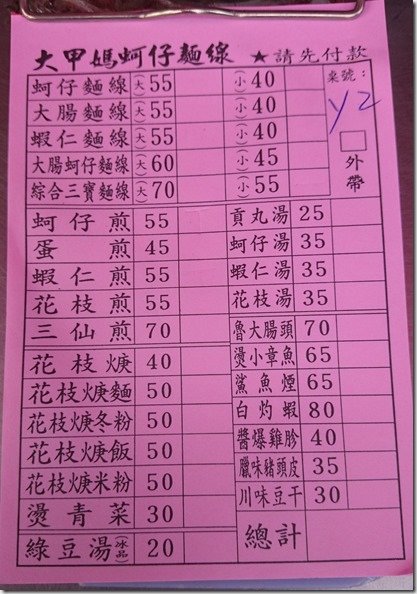 大甲媽蚵仔麵線 ★請先付款
蚵仔麵線 (大)55 (小)40 桌號：
大腸麵線 (大)55 (小)40 Y2
蝦仁麵線 (大)55 (小)40
大腸蚵仔麵線 (大)60 (小)45 □外帶
綜合三寶麵線 (大)70 (小)55
蚵仔煎 55 貢丸湯 25
蛋煎 45 蚵仔湯 35
蝦仁煎 55 蝦仁湯 35
花枝煎 55 花枝湯 35
三仙煎 70 魯大腸頭 70
花枝焿 40 燙小章魚 65
花枝焿麵 50 鯊魚煙 65
花枝焿冬粉 50 白灼蝦 80
花枝焿飯 50 醬爆雞胗 40
花枝焿米粉 50 臘味豬頭皮 35
燙青菜 30 川味豆干 30
綠豆湯(冰品) 20 總計